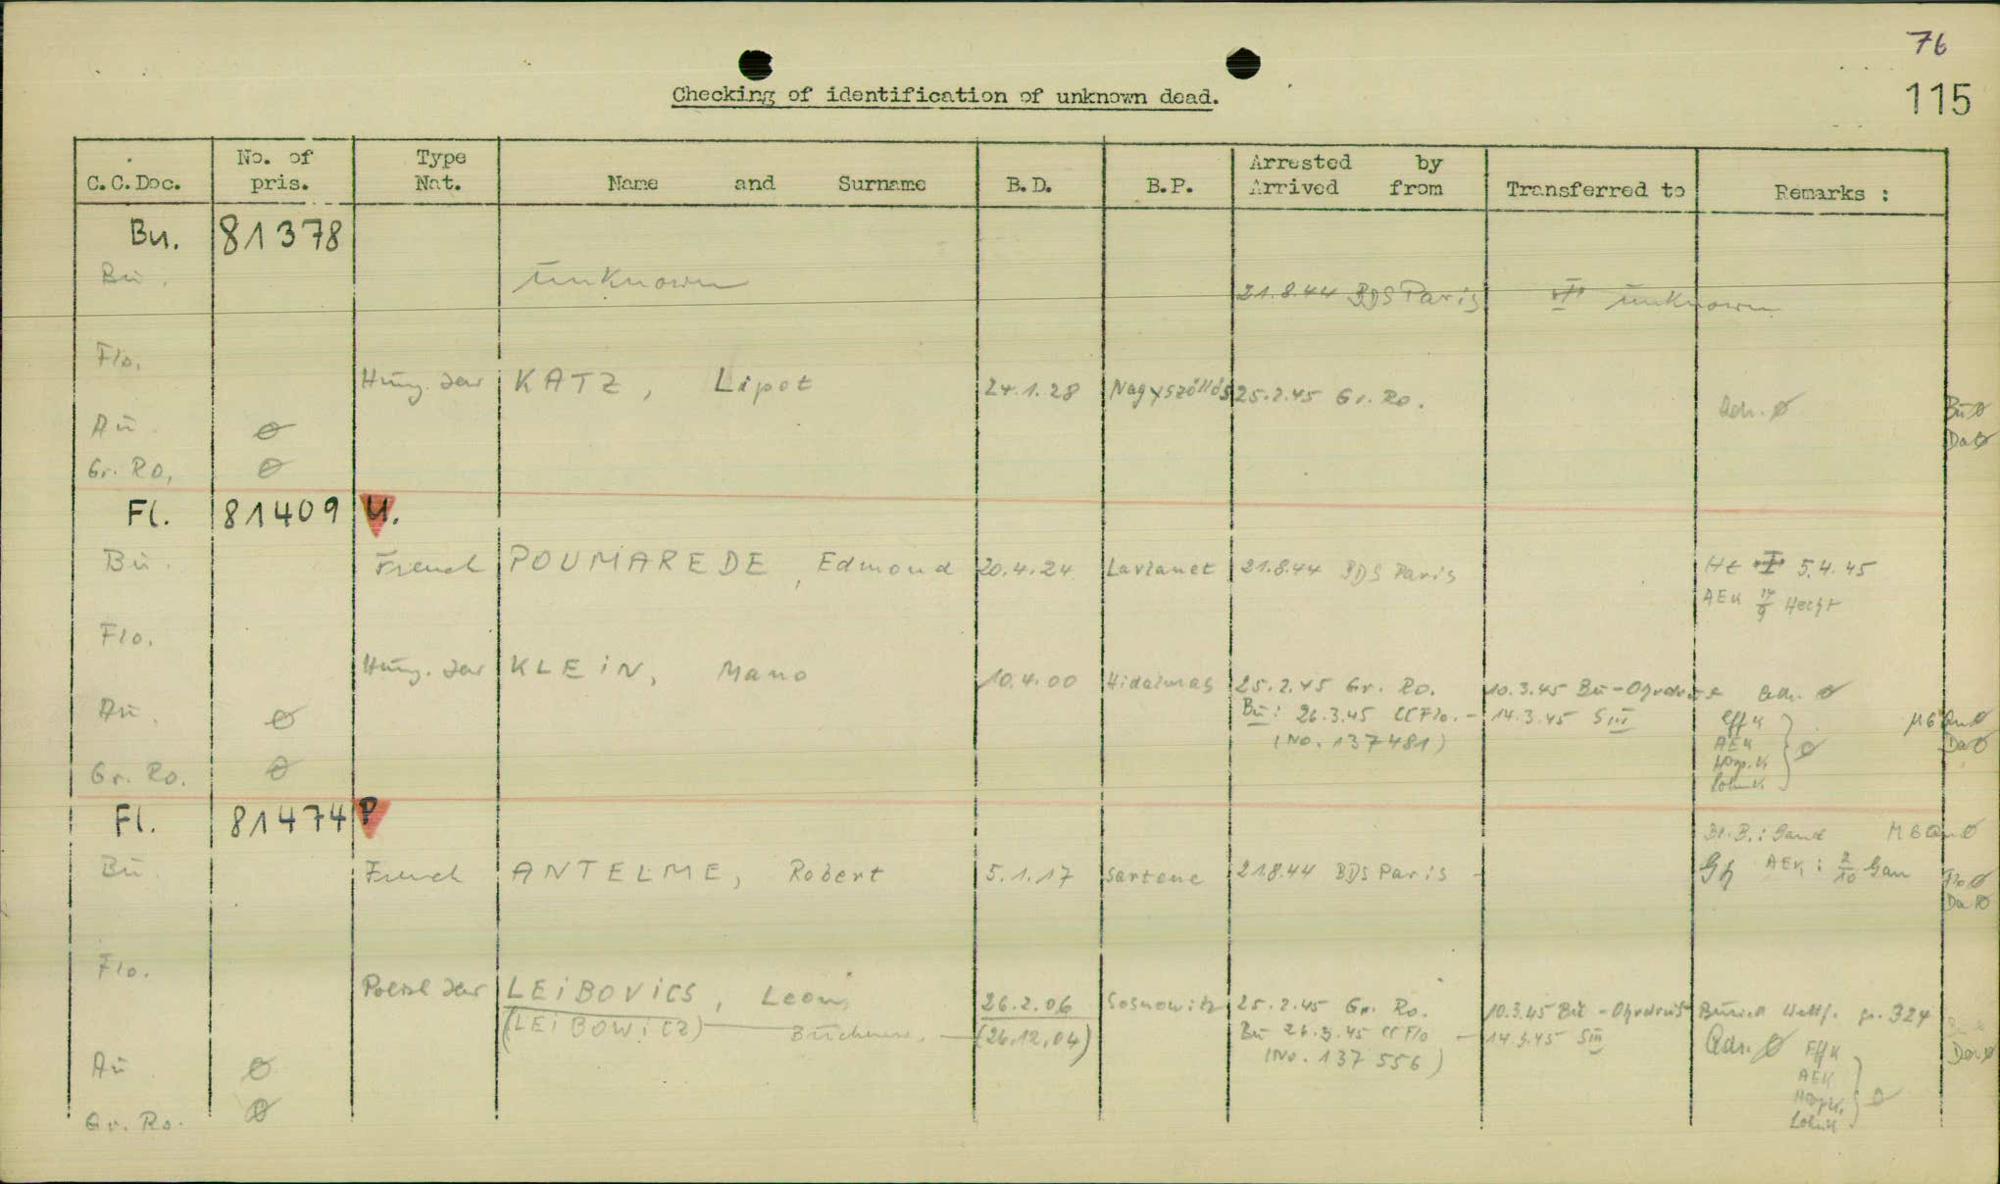 76
115
Checking of identification of unknown dead.
C.C.Doc. No. of pris. Type Nat. Name and Surname B.D. B.P. Arrested by Arrived from Transferred to Remarks :
Bu. 81378
Bu. unknown 21.8.44 BDS Paris unknown
Flo.
Hung. Jew KATZ, Lipot 24.1.28 Nagyszöllös 25.2.45 Gr. Ro. Adr. Ø Bu Ø
Au. Ø Da Ø
Gr. Ro, Ø
Fl. 81409 U.
Bu. French POUMAREDE, Edmond 20.4.24 Lavlanet 21.8.44 BDS Paris 5.4.45
AEK 17/9 Hecht
Flo.
Hung. Jew KLEiN, Mano 10.4.00 Hidalmas 25.2.45 Gr. Ro. 10.3.45 Bu-Ohrdruf Adr. Ø
Au. Ø Bu: 26.3.45 CC Flo. - 14.3.45 SIII Eff K
(No. 137481) AEK Ø Da Ø
Gr. Ro. Ø
Fl. 81474 P
Bu. French ANTELME, Robert 5.1.17 Sartene 21.8.44 BDS Paris - AEK: 2/10 Gan Flo Ø
Da Ø
Flo.
Polish Jew LEiBOViCS, Leon 26.2.06 Sosnowitz 25.2.45 Gr. Ro. 10.3.45 Bu - Ohrdruf Buried gr. 324
(LEiBOWiCZ) (26.12.04) Bu 26.3.45 CC Flo - 14.3.45 SIII Adr. Ø Eff K Da Ø
Au Ø (No. 137556) AEK
Gr. Ro. Ø